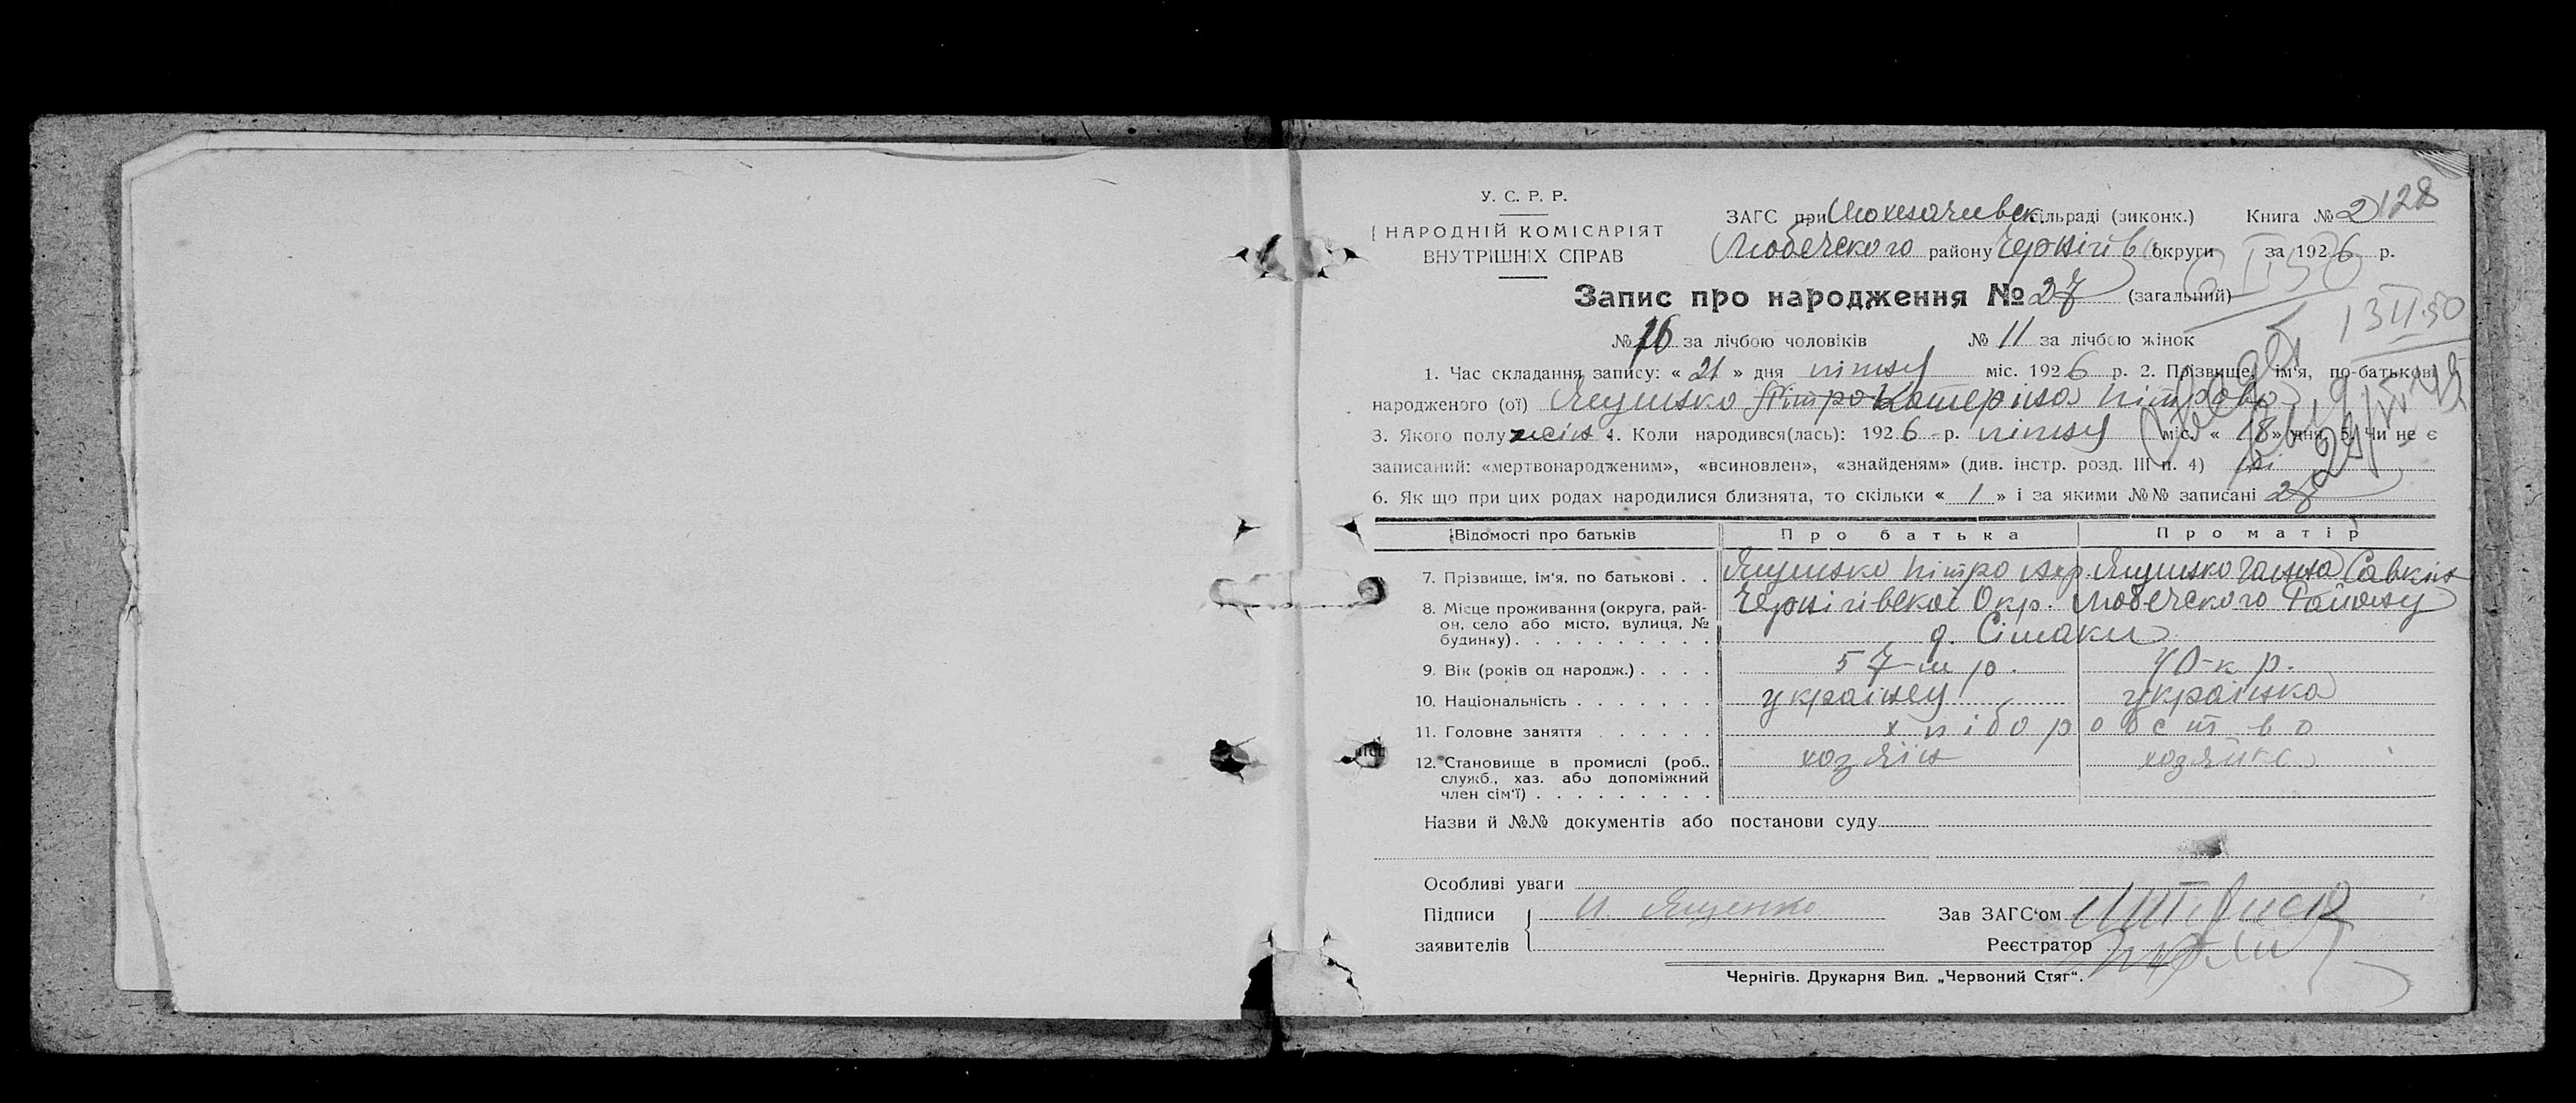 У. С. Р. Р.
НАРОДНІЙ КОМІСАРІЯТ
ВНУТРІШНІХ СПРАВ
ЗАГС при сільраді (виконк.) Книга № 2 128
Любечского району Чернігів округи за 1926 р.
Запис про народження № 27 (загальний)
№ 16 за лічбою чоловіків № 11 за лічбою жінок
13 II 50
1. Час складання запису: « 21 » дня липня міс. 1926 р. 2. Прізвище, ім'я, по-батькові
народженого (ої) Ященко Пітро Катеріна Пітрова
3. Якого полу жін 4. Коли народився(лась): 1926 р. липня міс. « 18 » дня 5. Чи не є
записаний: «мертвонародженим», «всиновлен», «знайденям» (див. інстр. розд. III п. 4) ні
6. Як що при цих родах народилися близнята, то скільки « 1 » і за якими №№ записані 27
Відомості про батьків Про батька Про матір
7. Прізвище, ім'я, по батькові . . Ященко Пітро Ященко Ганна Савкін
8. Місце проживання (округа, рай- Чернігівскої Окр. Любечского Району
он, село або місто, вулиця, № д. Сімаки
будинку) . . . . . . . . . .
9. Вік (років од народж.) . . . . 57-м р. 40-к р.
10. Національність . . . . . . . українец українка
11. Головне заняття . . . . . . хліборобство
12. Становище в промислі (роб., хозяін хозяйка
служб., хаз. або допоміжний
член сім'ї) . . . . . . . . .
Назви й №№ документів або постанови суду
Особливі уваги
Підписи П. Ященко Зав ЗАГС'ом
заявителів Реєстратор
Чернігів. Друкарня Вид. „Червоний Стяг“.